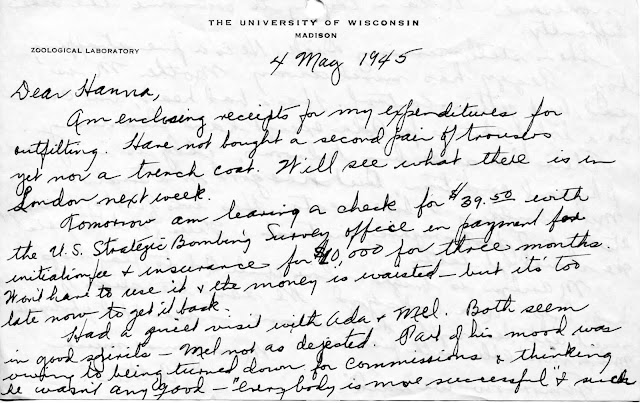 THE UNIVERSITY OF WISCONSIN
MADISON
ZOOLOGICAL LABORATORY
4 May 1945
Dear Hanna,
Am enclosing receipts for my expenditures for
outfitting. Have not bought a second pair of trousers
yet nor a trench coat. Will see what there is in
London next week.
Tomorrow am leaving a check for $39.50 with
the U.S. Strategic Bombing Survey office in payment for
initiation fee & insurance for $10,000 for three months.
Won't have to use it & the money is waisted - but it's too
late now to get it back.
Had a quiet visit with Ada & Mel. Both seem
in good spirits - Mel not as dejected. Part of his mood was
owing to being turned down for commissions & thinking
he wasn't any good - "everybody is more successful" & such